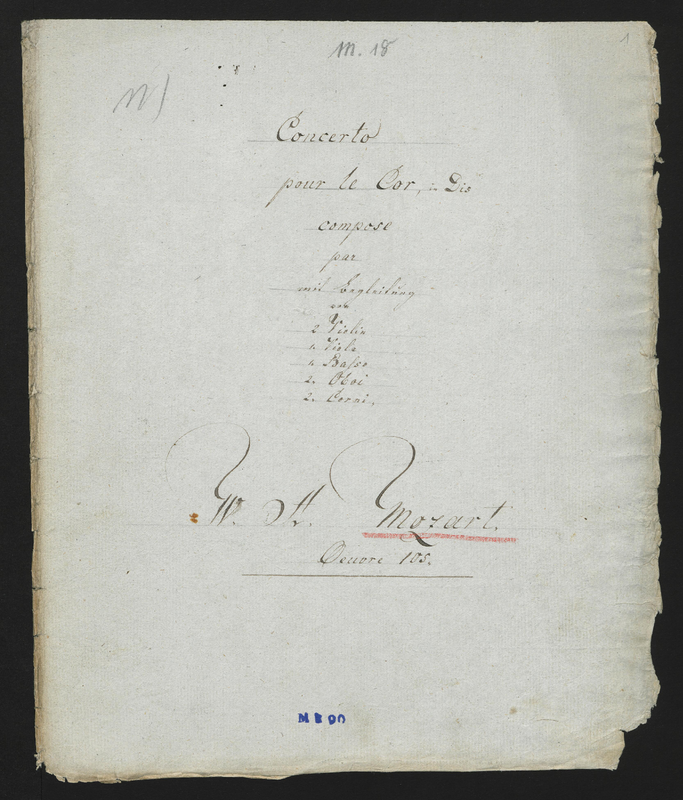 m. 18
1
Concerto
pour le Cor, in Dis
compose
par
mit Begleitung
von
2 Violin
1. Viola
1. Basso
2. Oboi
2. Corni,
W. A. Mozart.
Oeuvre 105.
M B 90